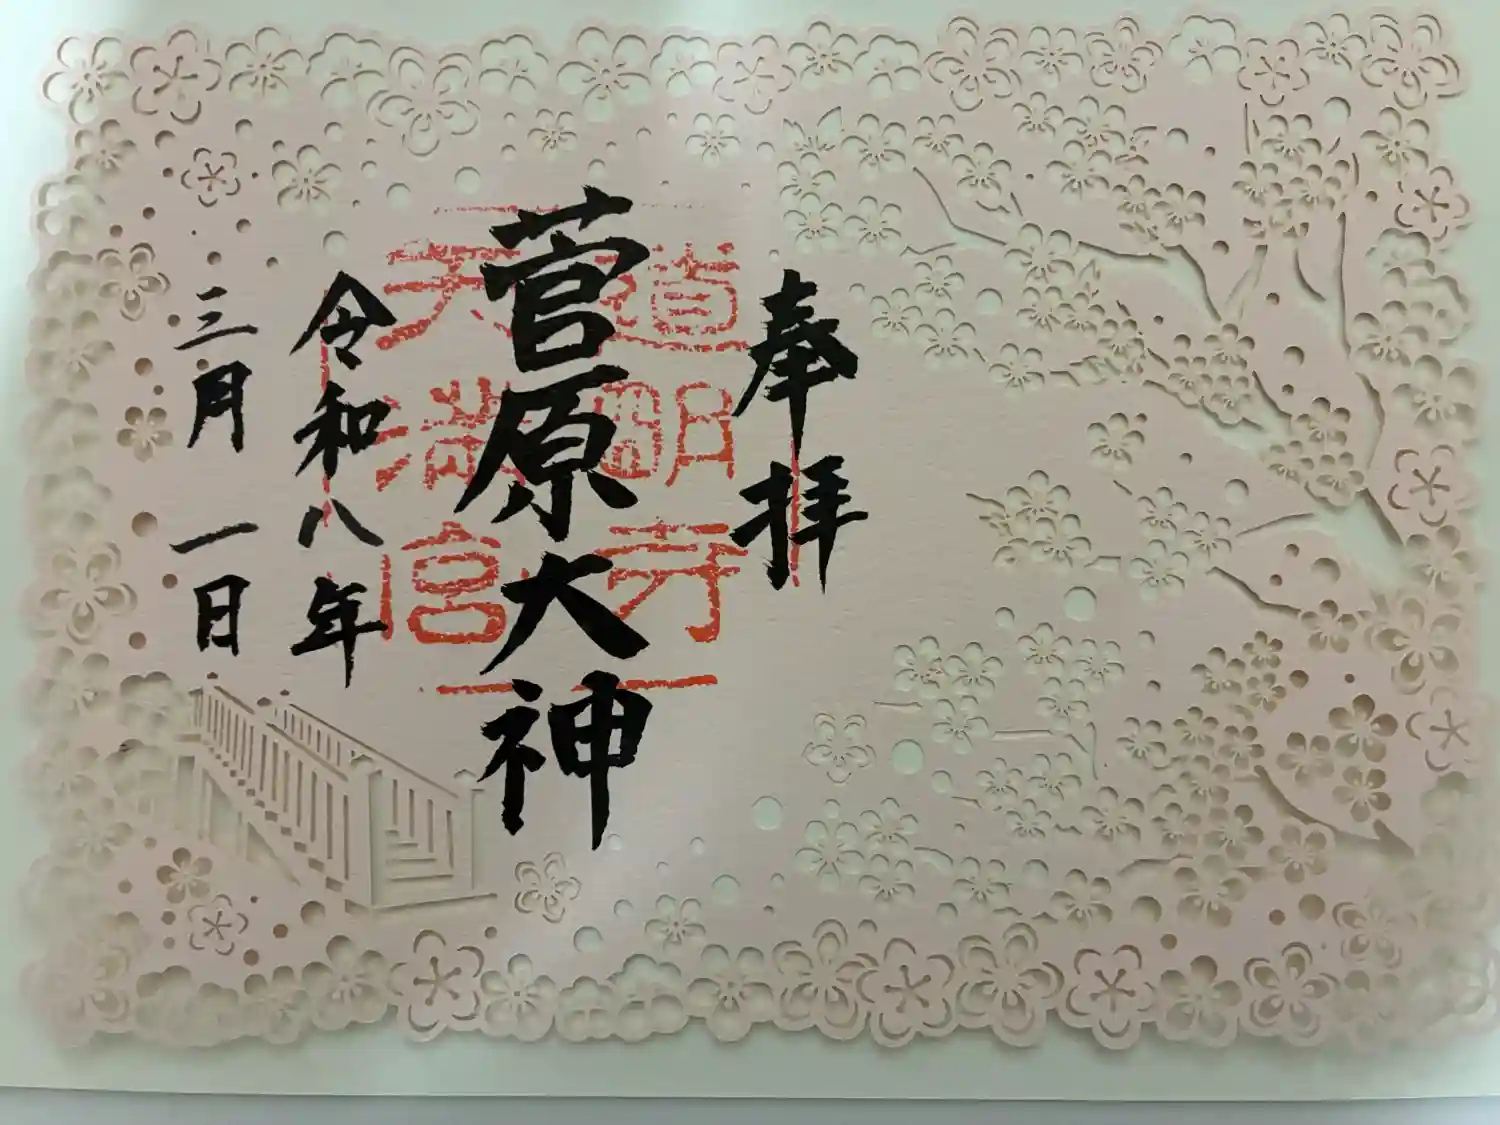 奉拝
道明寺
天満宮
菅原大神
令和八年
三月一日